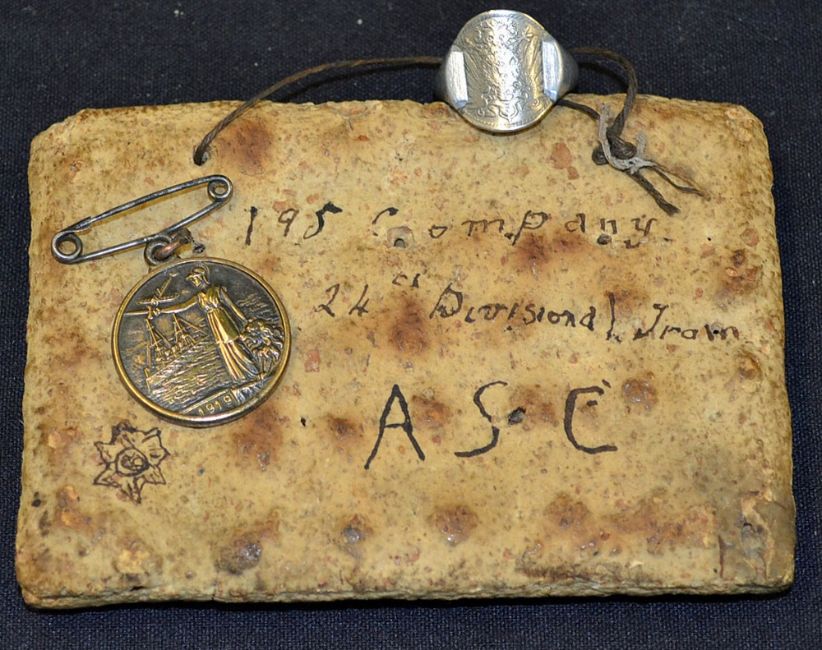 195 Company
24th Divisional Train
A S C
1919